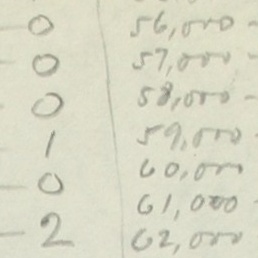 0 56,000 -
0 57,000 -
0 58,000 -
1 59,000 -
0 60,000
0 61,000 -
2 62,000